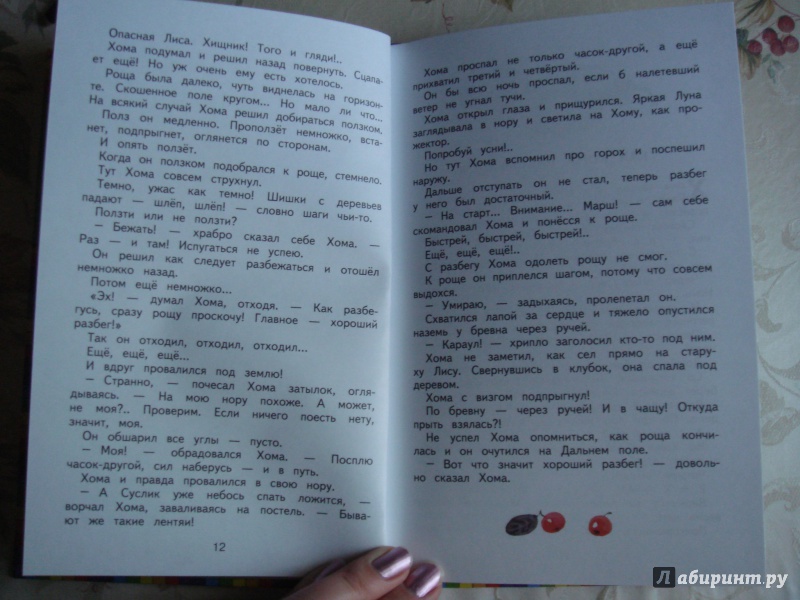 Опасная Лиса. Хищник! Того и гляди!..
Хома подумал и решил назад повернуть. Сцапа-
ет ещё! Но уж очень ему есть хотелось.
Роща была далеко, чуть виднелась на горизон-
те. Скошенное поле кругом... Но мало ли что...
На всякий случай Хома решил добираться ползком.
Полз он медленно. Проползёт немножко, вста-
нет, подпрыгнет, оглянется по сторонам.
И опять ползёт.
Когда он ползком подобрался к роще, стемнело.
Тут Хома совсем струхнул.
Темно, ужас как темно! Шишки с деревьев
падают — шлёп, шлёп! — словно шаги чьи-то.
Ползти или не ползти?
— Бежать! — храбро сказал себе Хома. —
Раз — и там! Испугаться не успею.
Он решил как следует разбежаться и отошёл
немножко назад.
Потом ещё немножко...
«Эх! — думал Хома, отходя. — Как разбе-
гусь, сразу рощу проскочу! Главное — хороший
разбег!»
Так он отходил, отходил, отходил...
Ещё, ещё, ещё...
И вдруг провалился под землю!
— Странно, — почесал Хома затылок, огля-
дываясь. — На мою нору похоже. А может,
не моя?.. Проверим. Если ничего поесть нету,
значит, моя.
Он обшарил все углы — пусто.
— Моя! — обрадовался Хома. — Посплю
часок-другой, сил наберусь — и в путь.
Хома и правда провалился в свою нору.
— А Суслик уже небось спать ложится, —
ворчал Хома, заваливаясь на постель. — Быва-
ют же такие лентяи!
12
Хома проспал не только часок-другой, а ещё
прихватил третий и четвёртый.
Он бы всю ночь проспал, если б налетевший
ветер не угнал тучи.
Хома открыл глаза и прищурился. Яркая Луна
заглядывала в нору и светила на Хому, как про-
жектор.
Попробуй усни!..
Но тут Хома вспомнил про горох и поспешил
наружу.
Дальше отступать он не стал, теперь разбег
у него был достаточный.
— На старт... Внимание... Марш! — сам себе
скомандовал Хома и понёсся к роще.
Быстрей, быстрей, быстрей!..
Ещё, ещё, ещё!..
С разбегу Хома одолеть рощу не смог.
К роще он приплелся шагом, потому что совсем
выдохся.
— Умираю, — задыхаясь, пролепетал он.
Схватился лапой за сердце и тяжело опустился
наземь у бревна через ручей.
— Караул! — хрипло заголосил кто-то под ним.
Хома не заметил, как сел прямо на стару-
ху Лису. Свернувшись в клубок, она спала под
деревом.
Хома с визгом подпрыгнул!
По бревну — через ручей! И в чащу! Откуда
прыть взялась?!
Не успел Хома опомниться, как роща кончи-
лась и он очутился на Дальнем поле.
— Вот что значит хороший разбег! — доволь-
но сказал Хома.
Лабиринт.ру